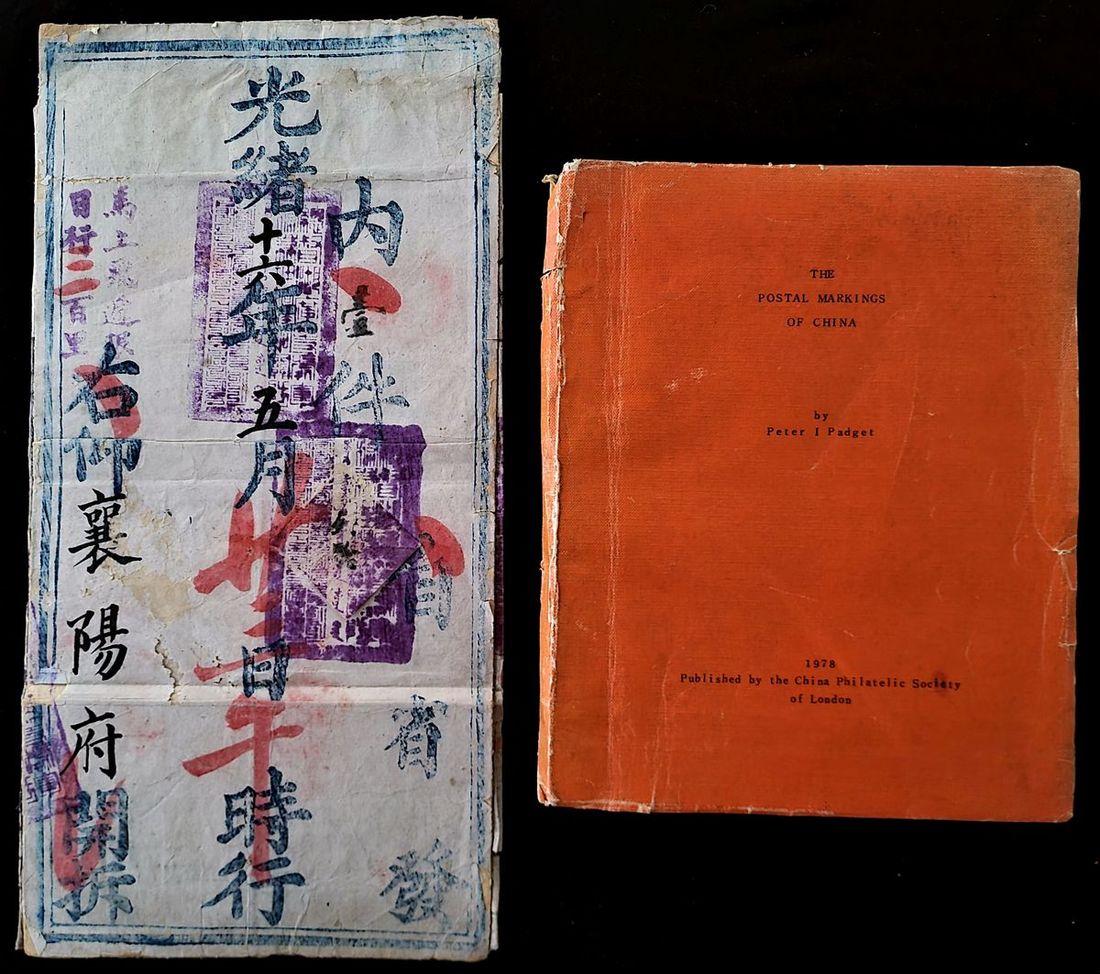 自省發
內壹件
光緒十六年五月廿日午時行
馬上飛遞限
日行三百里
右仰襄陽府開拆
THE
POSTAL MARKINGS
OF CHINA
by
Peter I Padget
1978
Published by the China Philatelic Society
of London